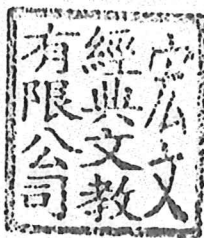 經典文教
有限公司